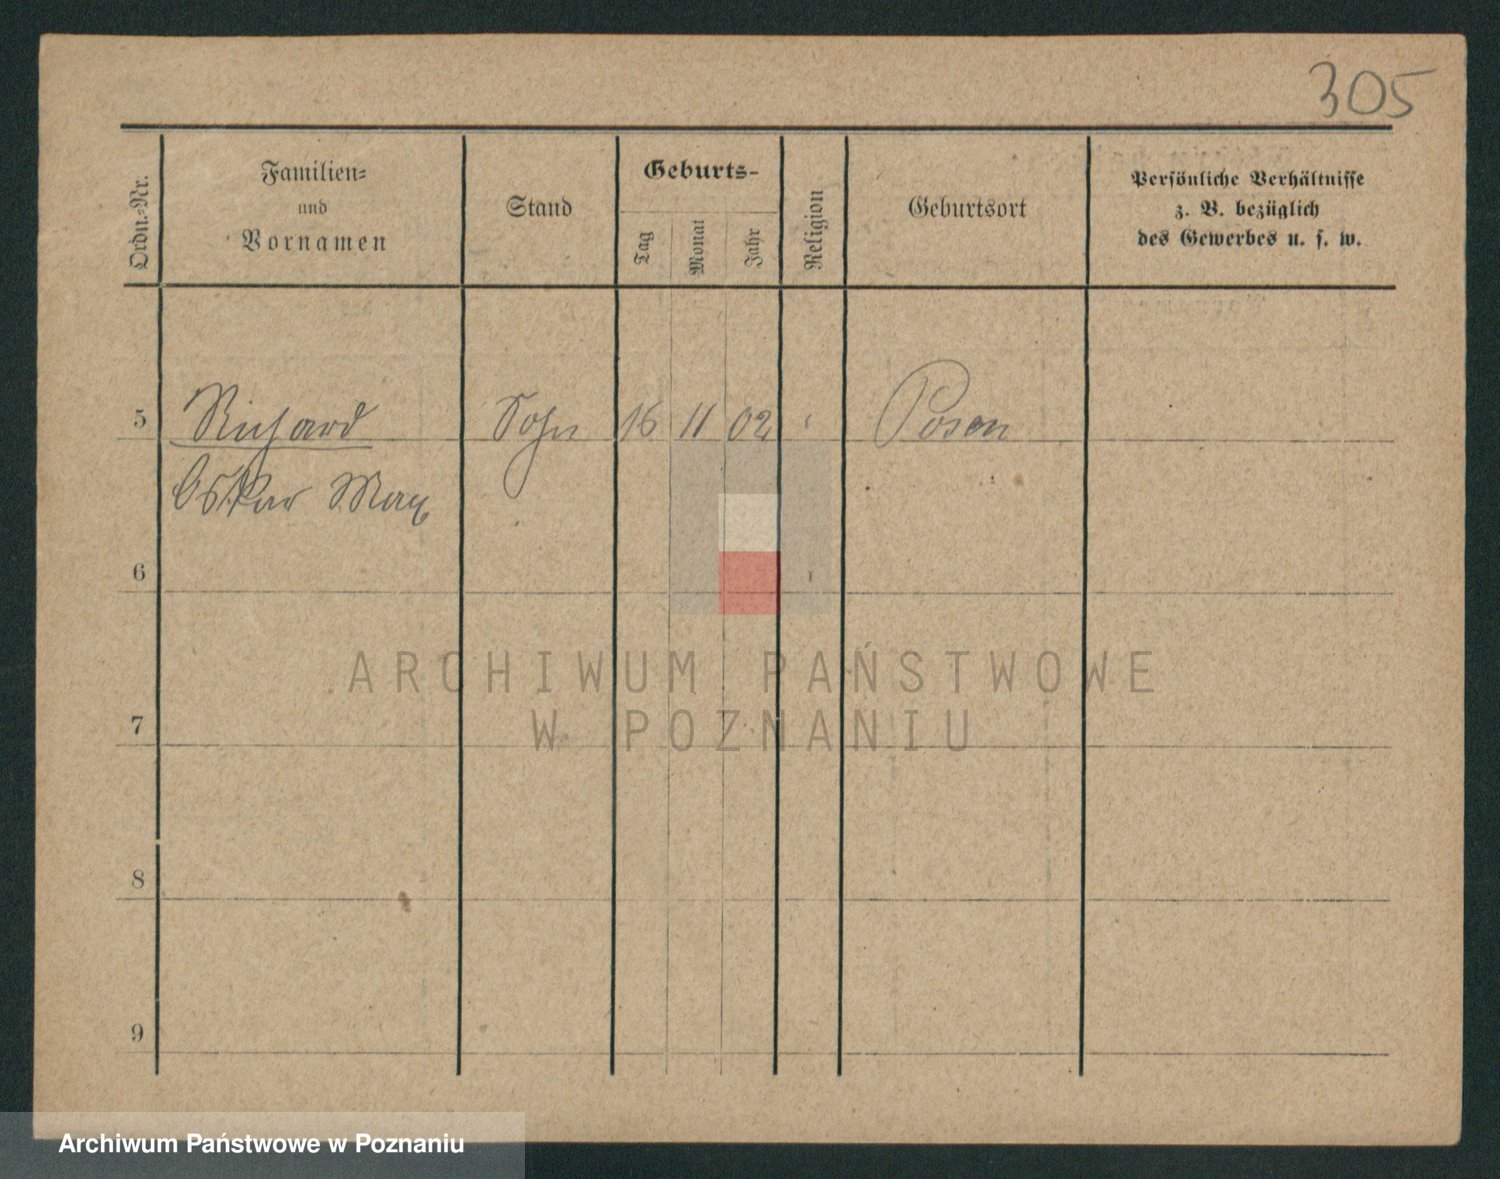 305
Ordn.-Nr.
Familien-
und
Vornamen
Stand
Geburts-
Tag
Monat
Jahr
Religion
Geburtsort
Persönliche Verhältnisse
z. B. bezüglich
des Gewerbes u. s. w.
5 Richard Sohn 16 11 02 Posen
Oskar Max
6
7
8
9
ARCHIWUM PAŃSTWOWE
W POZNANIU
Archiwum Państwowe w Poznaniu